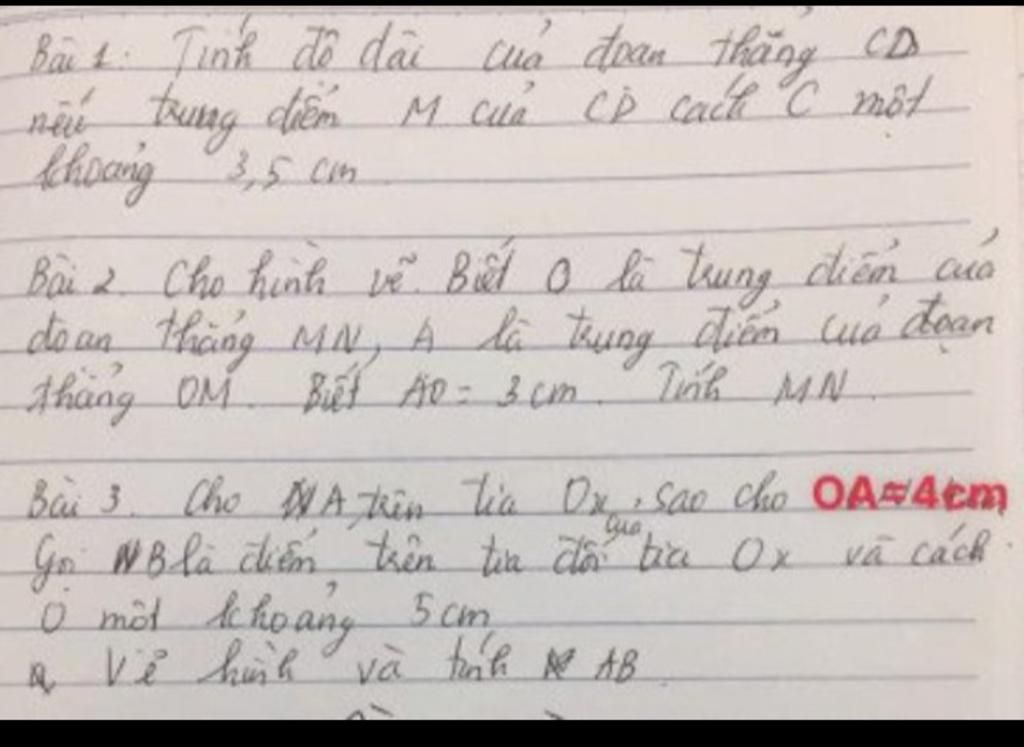 Bài 1. Tính độ dài của đoạn thẳng CD
nếu trung điểm M của CD cách C một
khoảng 3,5 cm
Bài 2. Cho hình vẽ. Biết O là trung điểm của
đoạn thẳng MN, A là trung điểm của đoạn
thẳng OM. Biết AO = 3 cm. Tính MN.
Bài 3. Cho A trên tia Ox, sao cho OA=4cm
Gọi B là điểm trên tia đối của tia Ox và cách
O một khoảng 5 cm
Vẽ hình và tính AB